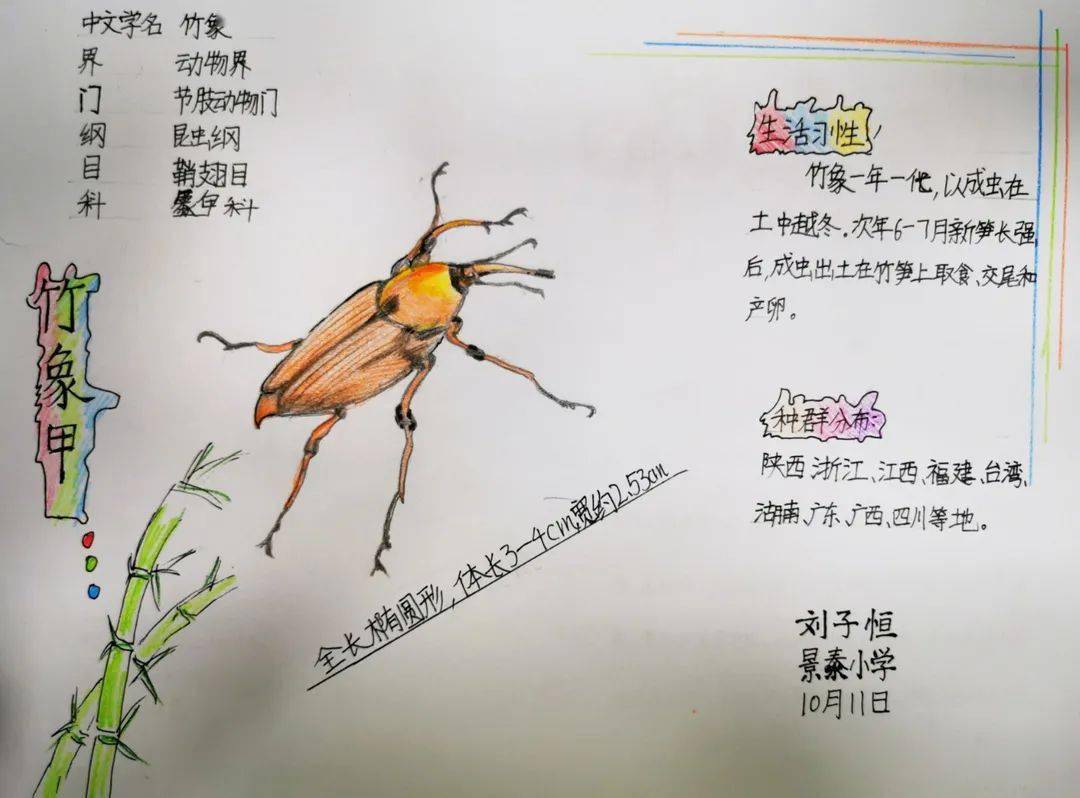 中文学名 竹象
界 动物界
门 节肢动物门
纲 昆虫纲
目 鞘翅目
科 甲科
竹象甲
生活习性
竹象一年一代,以成虫在
土中越冬。次年6-7月新笋长强
后,成虫出土在竹笋上取食、交尾和
产卵。
种群分布:
陕西、浙江、江西、福建、台湾、
湖南、广东、广西、四川等地。
全长椭圆形,体长3-4cm宽约2.53cm
刘子恒
景泰小学
10月11日